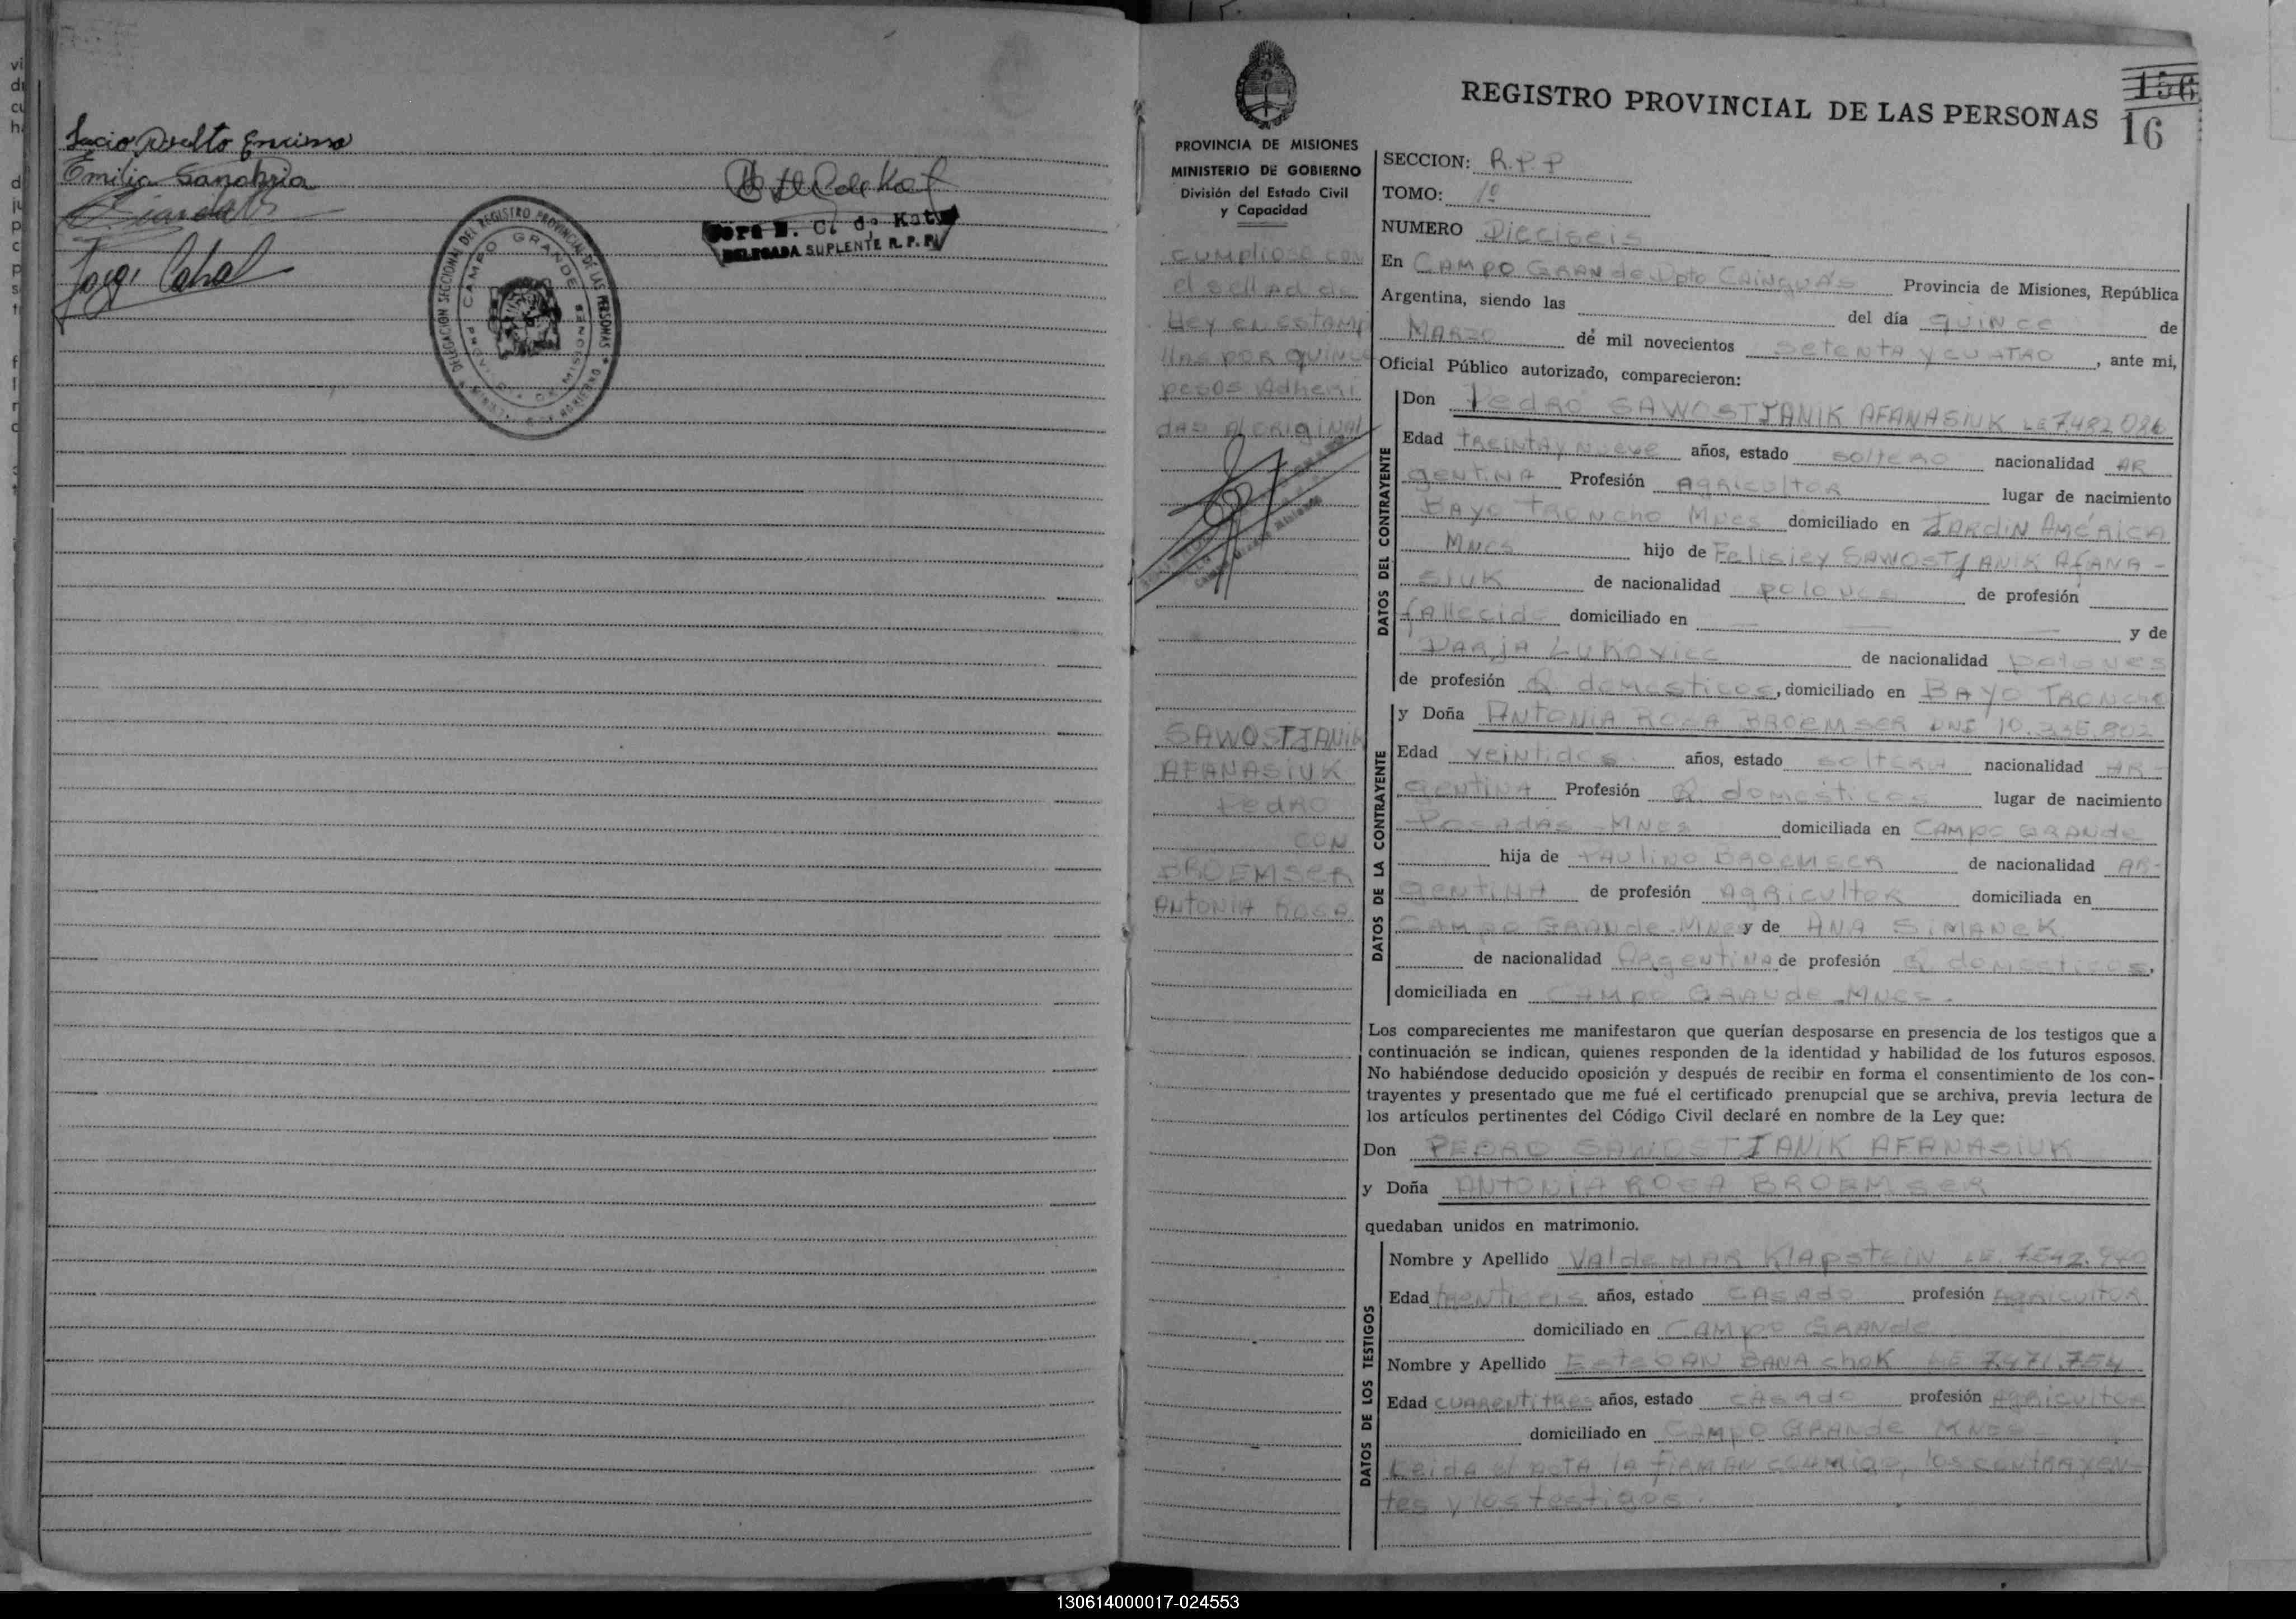 Lucio Adelto Encina
Emilia Sanabria
Jorge Cabral
DELEGACION SECCIONAL DEL REGISTRO PROVINCIAL DE LAS PERSONAS
CAMPO GRANDE
MISIONES
DELEGADA SUPLENTE R. P. P.
PROVINCIA DE MISIONES
MINISTERIO DE GOBIERNO
División del Estado Civil
y Capacidad
CUMPLIOSE CON
el sellad de
Ley en estampi
llas por quince
pesos Adheri
das Al original
SAWOSTJANIK
AFANASIUK
Pedro
CON
BROEMSER
ANTONIA ROSA
REGISTRO PROVINCIAL DE LAS PERSONAS
156
16
SECCION: R.P.P
TOMO: 1º
NUMERO Dieciseis
En CAMPO GRANde Dpto CAINGUÁS Provincia de Misiones, República
Argentina, siendo las del día quince de
MARZO de mil novecientos setenta y cuatro, ante mi,
Oficial Público autorizado, comparecieron:
DATOS DEL CONTRAYENTE
Don Pedro SAWOSTJANIK AFANASIUK LE 7.482.086
Edad treinta y nueve años, estado soltero nacionalidad AR
gentina Profesión Agricultor lugar de nacimiento
Bayo Troncho Mnes domiciliado en JARDIN AMÉRICA
Mnes hijo de Felisiey SAWOSTJANIK AFANA-
SIUK de nacionalidad polones de profesión
fallecido domiciliado en — — — y de
DARJA LUKOVIEC de nacionalidad polones
de profesión Q. domesticos, domiciliado en BAYO TRONCHO
DATOS DE LA CONTRAYENTE
y Doña ANTONIA ROSA BROEMSER DNI 10.336.802
Edad veintidos años, estado soltera nacionalidad AR-
gentina Profesión Q. domésticos lugar de nacimiento
Posadas - Mnes domiciliada en CAMPO GRANDE
hija de PAULINO BROEMSER de nacionalidad AR-
gentina de profesión Agricultor domiciliada en
CAMPO GRANde - Mnes y de ANA SIMANEK
de nacionalidad Argentina de profesión Q. domesticos,
domiciliada en CAMPO GRANde - Mnes.
Los comparecientes me manifestaron que querían desposarse en presencia de los testigos que a
continuación se indican, quienes responden de la identidad y habilidad de los futuros esposos.
No habiéndose deducido oposición y después de recibir en forma el consentimiento de los con-
trayentes y presentado que me fué el certificado prenupcial que se archiva, previa lectura de
los artículos pertinentes del Código Civil declaré en nombre de la Ley que:
Don PEDRO SAWOSTJANIK AFANASIUK
y Doña ANTONIA ROSA BROEMSER
quedaban unidos en matrimonio.
DATOS DE LOS TESTIGOS
Nombre y Apellido Valdemar Klapstein LE.
Edad treintiseis años, estado casado profesión Agricultor
domiciliado en CAMPO GRANde
Nombre y Apellido Esteban BANAchoK LE 7.471.754
Edad cuarentitres años, estado casado profesión Agricultor
domiciliado en CAMPO GRANde Mnes -
Leida el acta la firman conmigo, los contrayen-
tes y los testigos.
130614000017-024553